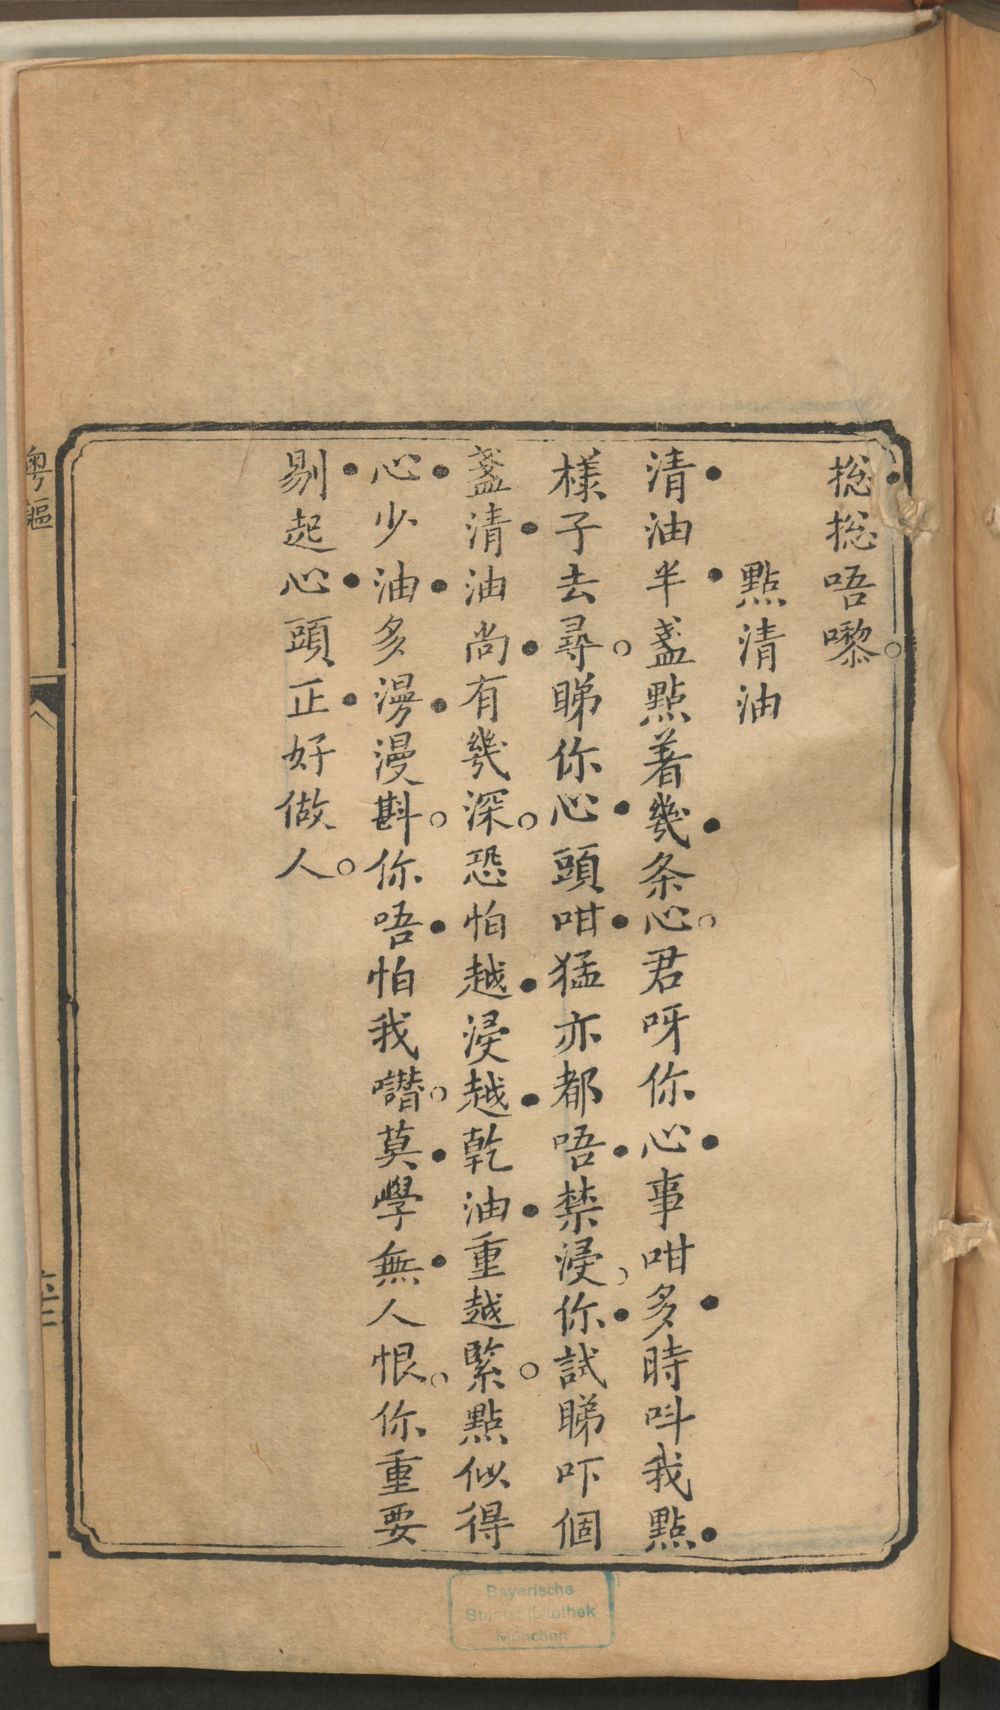 捴捴唔嚟
點清油
清油半盞點着幾条心君呀你心事咁多時呌我點
樣子去尋睇你心頭咁猛亦都唔禁浸你試睇吓個
盞清油尚有幾深恐怕越浸越乾油重越緊點似得
心少油多漫漫斟你唔怕我𡅏莫學無人恨你重要
剔起心頭正好做人
粵謳
Bayerische
Staatsbibliothek
München